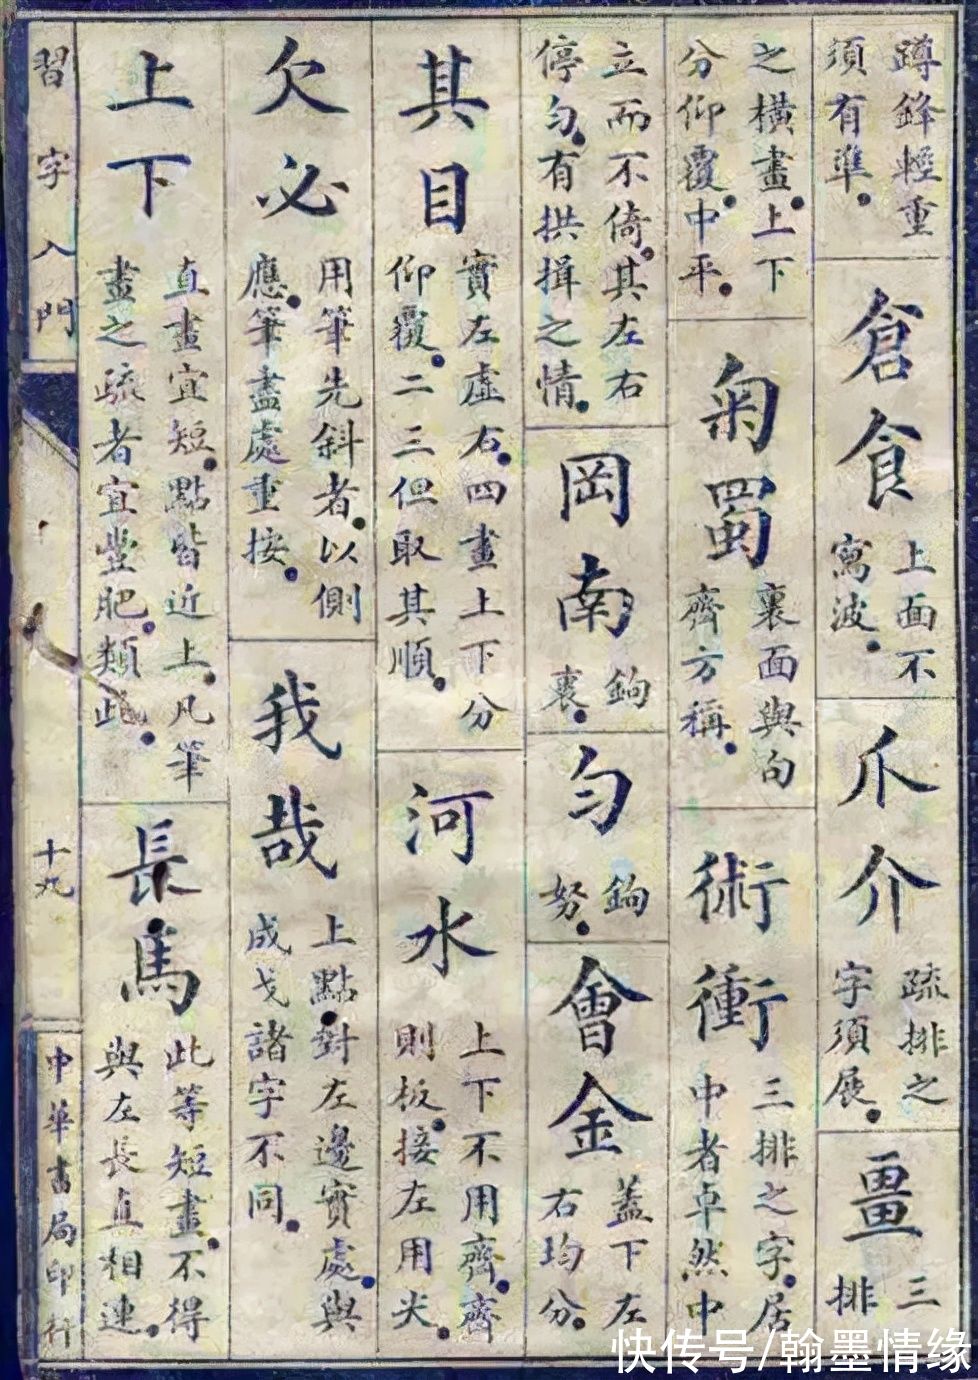 蹲鋒輕重
須有準。
倉食
上面不
寫波。
爪介
疏排之
字須展。
畺
三
排
之橫畫。上下
分仰覆。中平。
匊蜀
裏面與句
齊方稱。
術衝
三排之字。居
中者卓然中
立而不倚。其左右
停勻。有拱揖之情。
岡南
鉤
裏。
勻
鉤
努。
會金
蓋下左
右均分。
其目
實左虛右。四畫上下分
仰覆。二三但取其順。
河水
上下不用齊。齊
則板。接左用尖。
欠必
用筆先斜者。以側
應。筆盡處重按。
我哉
上點。對左邊實處。與
成戈諸字不同。
上下
直畫宜短。點皆近上。凡筆
畫之疏者宜豐肥。類此。
長馬
此等短畫。不得
與左長直相連。
習字入門
十九
中華書局印行
快传号/翰墨情缘